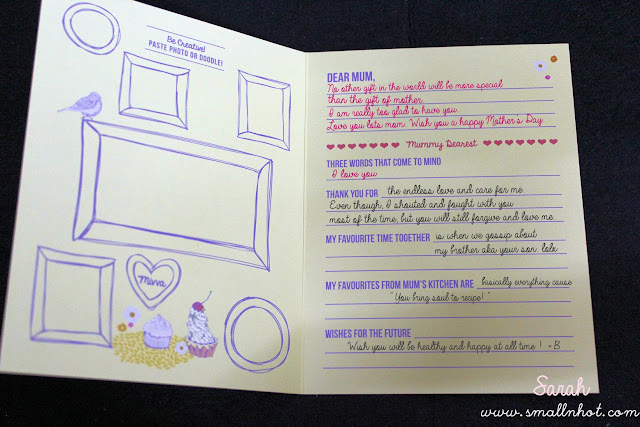 Be Creative!
PASTE PHOTO OR DOODLE!
Mma
DEAR MUM,
No other gift in the world will be more special
than the gift of mother.
I am really too glad to have you.
Love you lots mom. Wish you a happy Mother's Day
Mummy Dearest
THREE WORDS THAT COME TO MIND
I love you
THANK YOU FOR the endless love and care for me.
Even though, I shouted and fought with you
most of the time, but you will still forgive and love me.
MY FAVOURITE TIME TOGETHER is when we gossip about
my brother aka your son. lolx
MY FAVOURITES FROM MUM'S KITCHEN ARE basically everything cause
"You bring soul to recipe!"
WISHES FOR THE FUTURE
Wish you will be healthy and happy at all time ! =B
Sarah
www.smallnhot.com